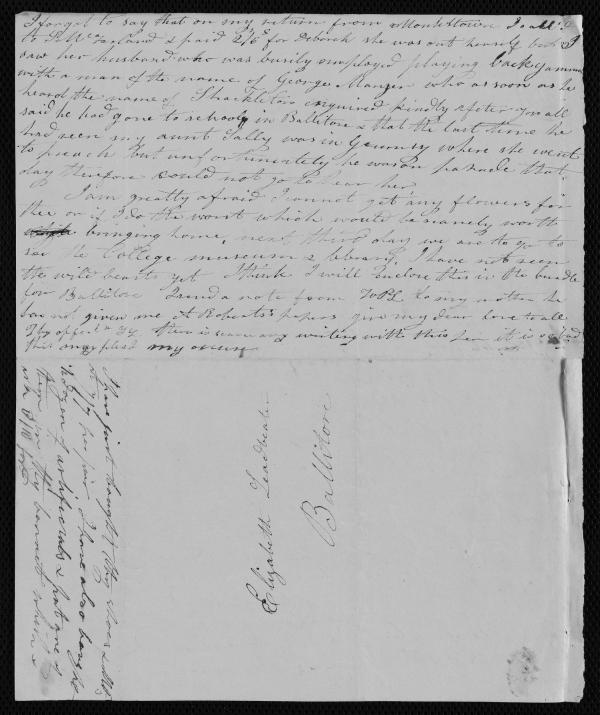 I forgot to say that on my return from Monkstown I call'd
& paid 2/6 for Deborah she was out herself but I
saw her husband who was busily employed playing backgammon
with a man of the name of George Manzer who as soon as he
heard the name of Shackleton enquired kindly after you all
said he had gone to school in Ballitore & that the last time he
had seen my aunt Sally was in Guernsey where she went
to preach but unfortunately he was on parade that
day therefore could not go to hear her
I am greatly afraid I cannot get any flowers for
thee or if I do the worst which would be scarcely worth
bringing home, next third day we are to go to
see the College museum & library, I have not seen
the wild beasts yet I think I will enclose this in the bundle
for Ballitore I send a note from WPL to my mother he
has not given me A Roberts's papers give my dear love to all
Thy affect there is scarce any writing with this pen it is so bad
this on my excuse
I have just bought thy shoes
per pair I have also bought
& put one of
them in thy bonnet which
Elizabeth Leadbeater
Ballitore